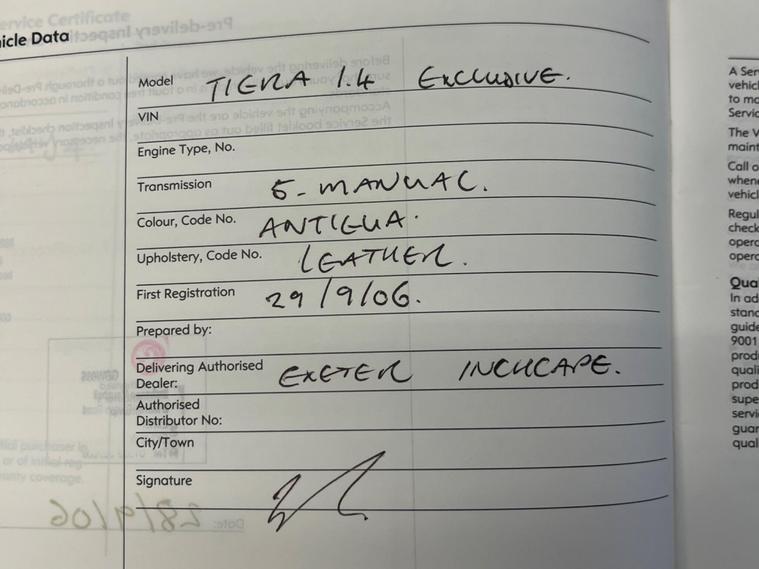 ervice Certificate
hicle Data
Model TIGRA 1.4 EXCLUSIVE.
VIN
Engine Type, No.
Transmission 5-MANUAL.
Colour, Code No. ANTIGUA.
Upholstery, Code No. LEATHER.
First Registration 29/9/06.
Prepared by:
Delivering Authorised
Dealer: EXETER INCHCAPE.
Authorised
Distributor No:
City/Town
Signature
A Ser
vehicl
to mo
Servic
The V
maint
Call o
when
vehicl
Regul
check
opera
opera
Qua
In ad
stand
guide
9001
prod
quali
prod
supe
servi
guar
qual